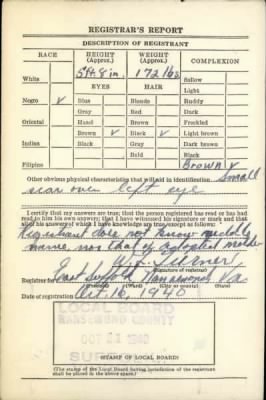 REGISTRAR'S REPORT
DESCRIPTION OF REGISTRANT
RACE
HEIGHT (Approx.)
WEIGHT (Approx.)
COMPLEXION
5 ft. 8 in.
172 lbs
White
EYES
HAIR
Sallow
Light
Negro ✓
Blue
Blonde
Ruddy
Gray
Red
Dark
Oriental
Hazel
Brown
Freckled
Brown ✓
Black ✓
Light brown
Indian
Black
Gray
Dark brown
Bald
Black
Filipino
Brown ✓
Other obvious physical characteristics that will aid in identification Small
scar over left eye
I certify that my answers are true; that the person registered has read or has had read to him his own answers; that I have witnessed his signature or mark and that all of his answers of which I have knowledge are true, except as follows:
Registrant does not know middle
name, nor that of adopted mother
Turner
(Signature of registrar)
Registrar for East Suffolk Nansemond Va
(Precinct)
(Ward)
(City or county)
(State)
Date of registration Oct. 16, 1940
LOCAL BOARD
NANSEMOND COUNTY
OCT 21 1940
(STAMP OF LOCAL BOARD)
(The stamp of the Local Board having jurisdiction of the registrant shall be placed in the above space.)